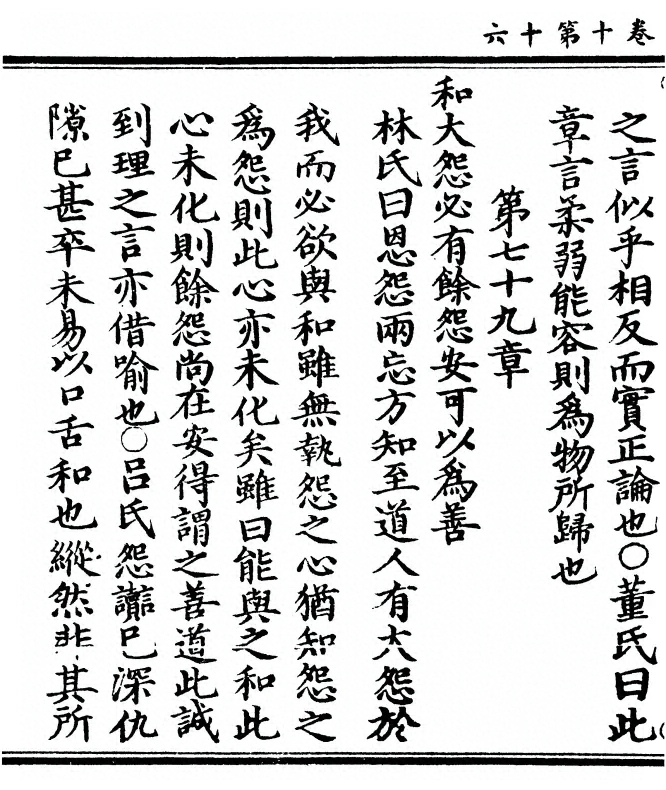 卷十第十六
之言似乎相反而實正論也○董氏曰此
章言柔弱能容則爲物所歸也
第七十九章
和大怨必有餘怨安可以爲善
林氏曰恩怨兩忘方知至道人有大怨於
我而必欲與和雖無執怨之心猶知怨之
爲怨則此心亦未化矣雖曰能與之和此
心未化則餘怨尚在安得謂之善道此誠
到理之言亦借喻也○吕氏怨讟已深仇
隙已甚卒未易以口舌和也縱然非其所